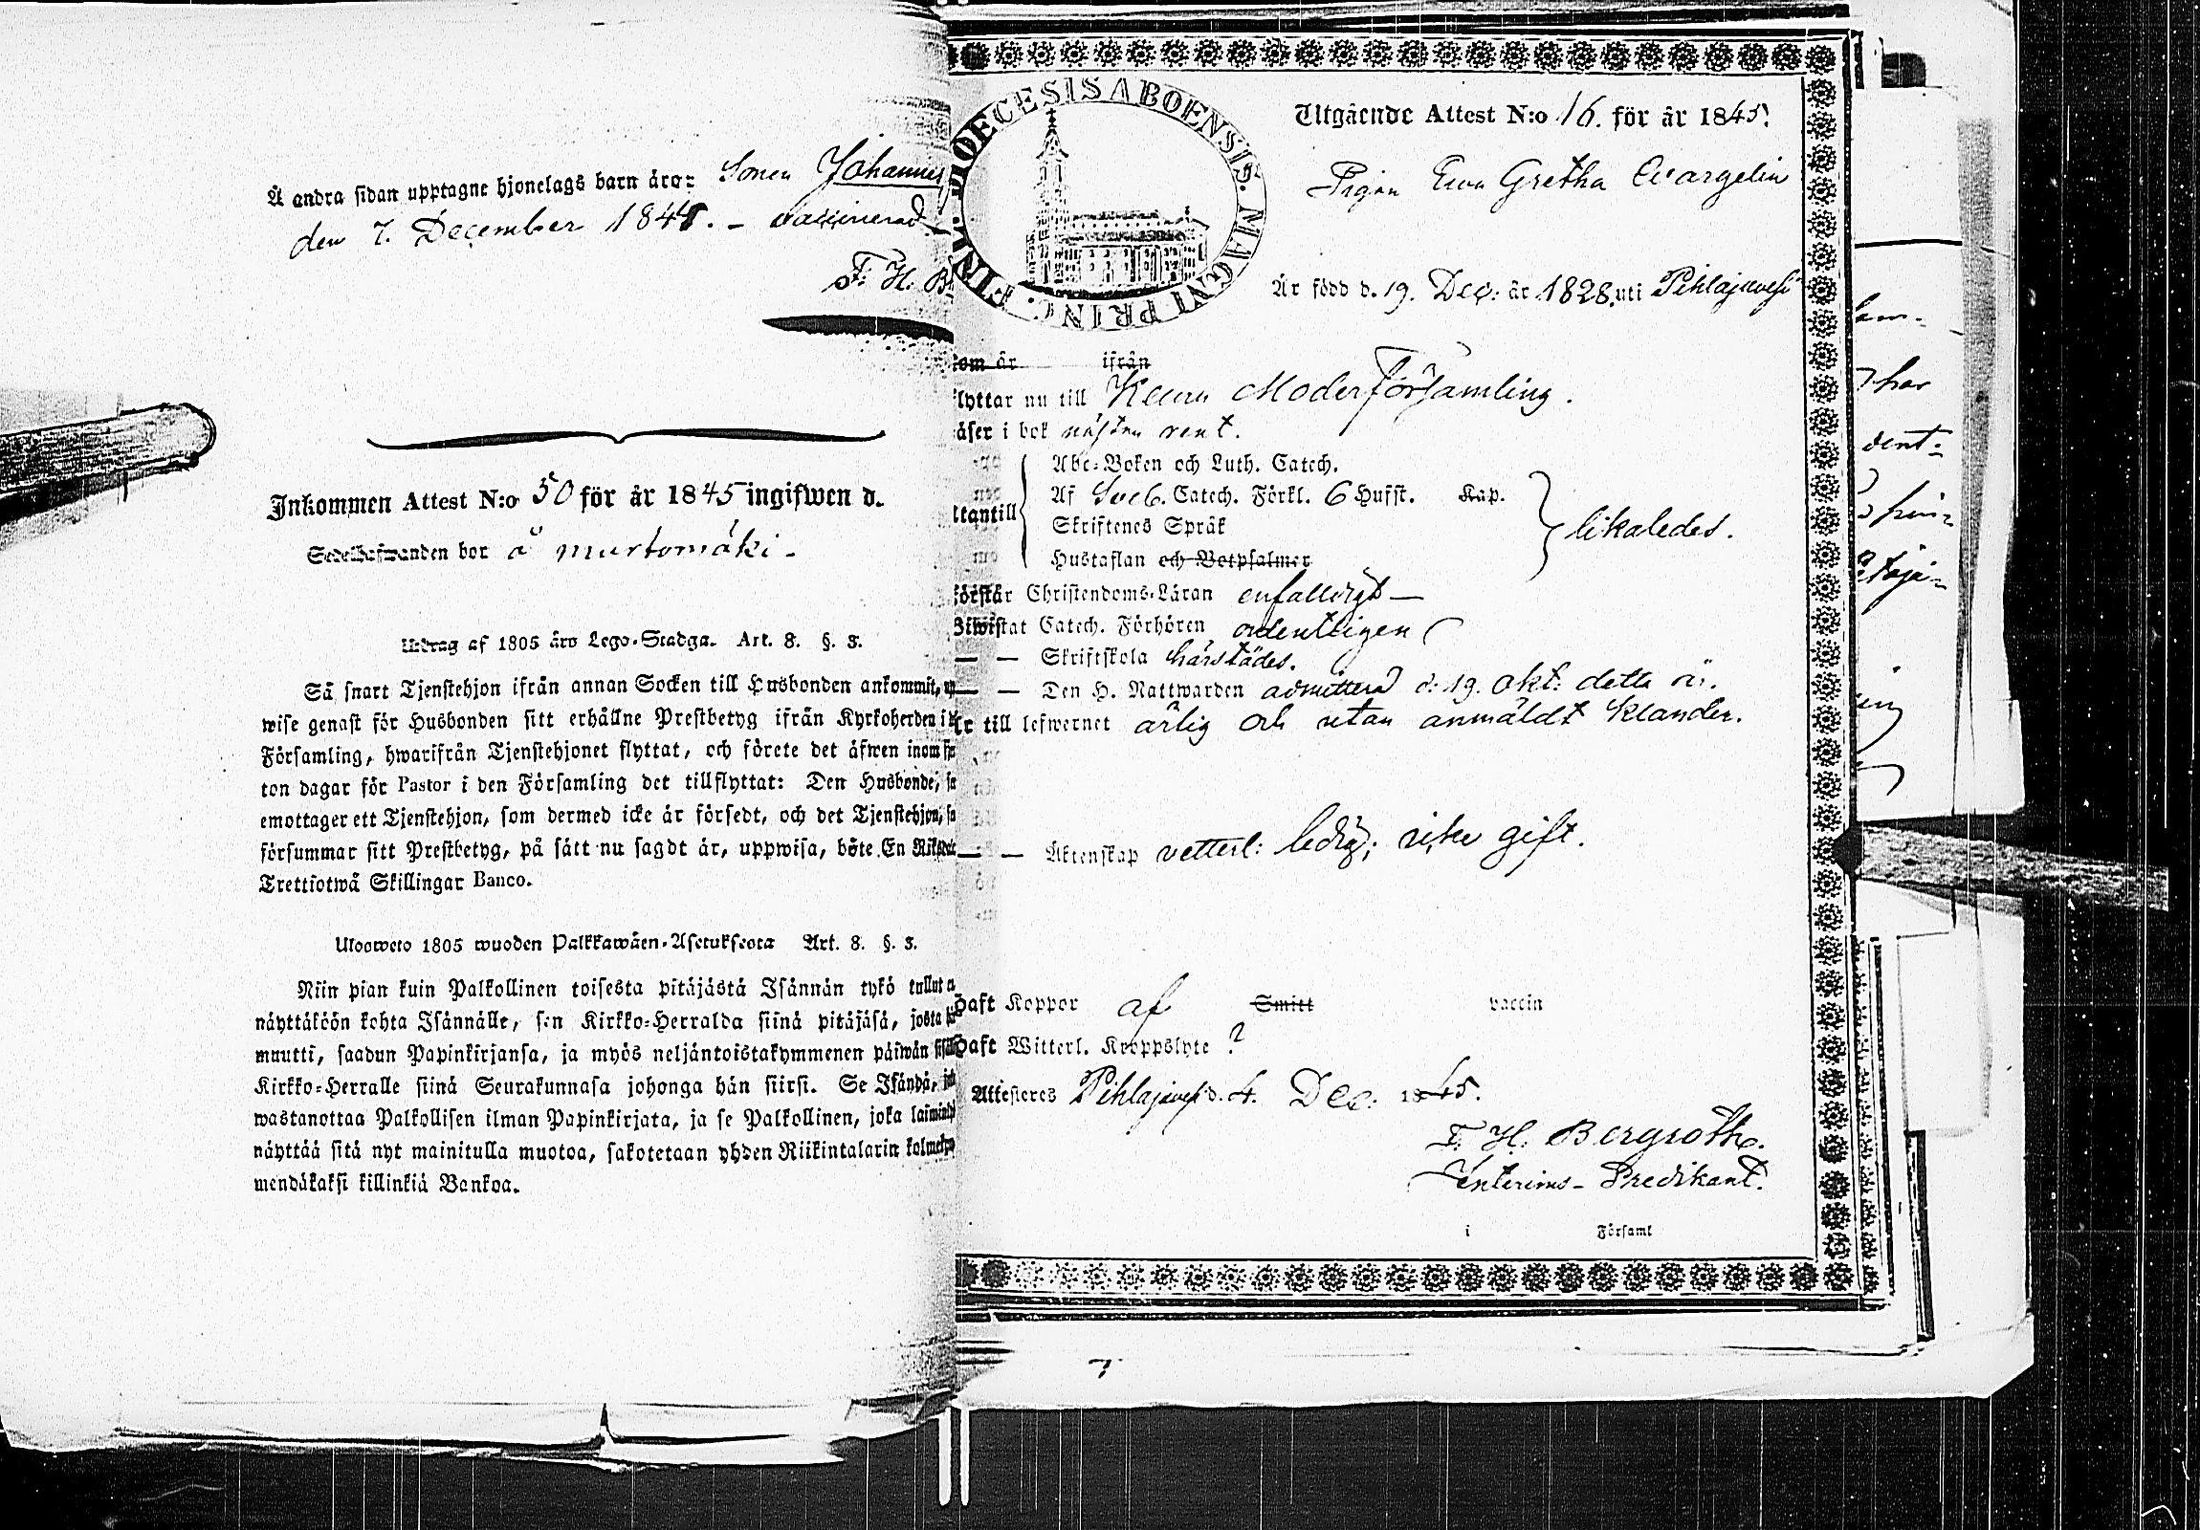 Å andra sidan upptagne hjonelags barn äro: Sonen Johannes
den 7. December 184 . – vaccinerad
F: H. B
Inkommen Attest N:o 50 för år 1845 ingifwen d.
Sedelhafwanden bor å murtomäki –
Utdrag af 1805 års Lego-Stadga. Art. 8. §. 3.
Så snart Tjenstehjon ifrån annan Socken till Husbonden ankommit,
wise genast för Husbonden sitt erhållne Prestbetyg ifrån Kyrkoherden i
Församling, hwarifrån Tjenstehjonet flyttat, och förete det äfwen inom
ton dagar för Pastor i den Församling det tillflyttat: Den Husbonde,
emottager ett Tjenstehjon, som dermed icke är försedt, och det Tjenstehjon,
försummar sitt Prestbetyg, på sätt nu sagdt är, uppwisa, böte En
Trettiotwå Skillingar Banco.
Ulosweto 1805 wuoden Palkkawäen-Asetuksesta Art. 8. §. 3.
Niin pian kuin Palkollinen toisesta pitäjästä Isännän tykö tullut
näyttäköön kohta Isännälle, sen Kirkko-Herralda siinä pitäjäsä, josta
muutti, saadun Papinkirjansa, ja myös neljäntoistakymmenen päiwän
Kirkko-Herralle siinä Seurakunnasa johonga hän siirsi. Se Isändä,
wastanottaa Palkollisen ilman Papinkirjata, ja se Palkollinen, joka
näyttää sitä nyt mainitulla muotoa, sakotetaan yhden Riikintalarin
mendäkaksi killinkiä Bankoa.
DIOECESIS ABOENSIS. MAGNI PRINC. FINL.
Utgående Attest N:o 16. för år 1845.
Pigan Ewa Gretha Evangelin
Är född d. 19. Dec: år 1828. uti Pihlajavesi
kom år ifrån
flyttar nu till Keuru Moderförsamling.
läser i bok nästan rent.
Abc-Boken och Luth. Catech.
Af Sveb. Catech. Förkl. 6 Hufst. Kap.
utantill
Skriftenes Språk
likaledes.
Hustaflan och Botpsalmer
förstår Christendoms-Läran enfalldigt –
Biwistat Catech. Förhören ordentligen
— — Skriftskola härstädes.
— — Den H. Nattwarden admitterad d: 19. Okt: detta år.
Är till lefwernet ärlig och utan anmäldt klander.
— — Äktenskap vetterl: ledig; icke gift.
Haft Koppor af Smitt vaccin
Haft Witterl. Kroppslyte ?
Attesteres Pihlajavesi d. 4. Dec. 1845.
F. H. Bergroth.
Interims-Predikant.
i Församl
lam-
har
dent-